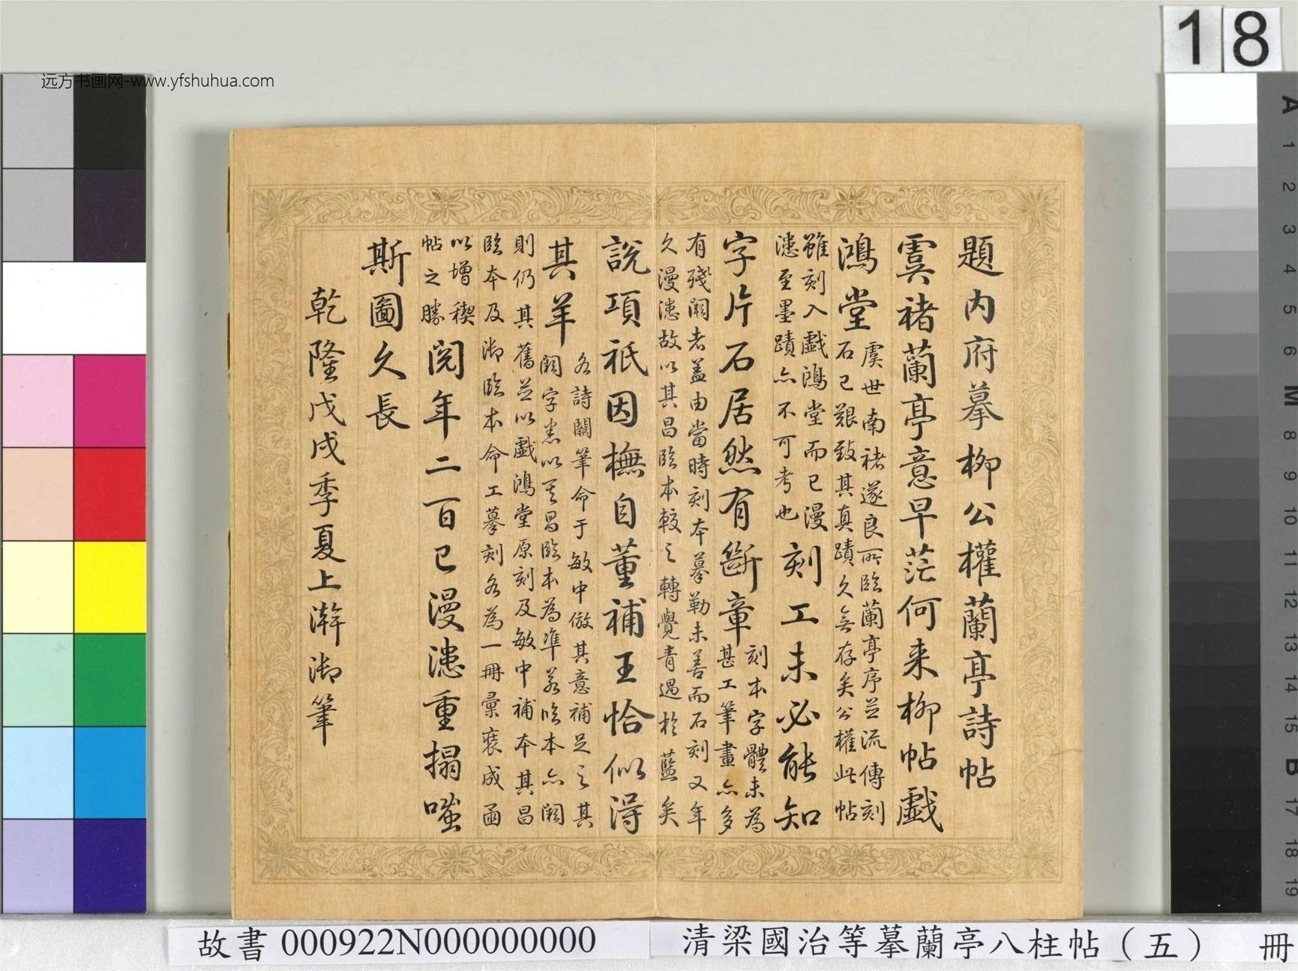 18
远方书画网-www.yfshuhua.com
題內府摹柳公權蘭亭詩帖
虞褚蘭亭意早茫何來柳帖戲
鴻堂
虞世南褚遂良所臨蘭亭序並流傳刻
石已艱致其真蹟久無存矣公權此帖
雖刻入戲鴻堂而已漫
漶至墨蹟亦不可考也
刻工未必能知
字片石居然有斷章
刻本字體未為
甚工筆畫亦多
有殘闕者蓋由當時刻本摹勒未善而石刻又年
久漫漶故以其昌臨本較之轉覺青過於藍矣
說項祇因撫自董補王恰似得
其羊
各詩闕筆命于敏中倣其意補足之其
闕字悉以其昌臨本為準若臨本亦闕
則仍其舊並以戲鴻堂原刻及敏中補本其昌
臨本及御臨本命工摹刻各為一冊彙裒成函
以增稧
帖之勝
閱年二百已漫漶重搨嗤
斯圖久長
乾隆戊戌季夏上澣御筆
A
1
2
3
4
5
6
M
8
9
10
11
12
13
14
15
B
17
18
19
故書 000922N000000000
清梁國治等摹蘭亭八柱帖（五） 冊